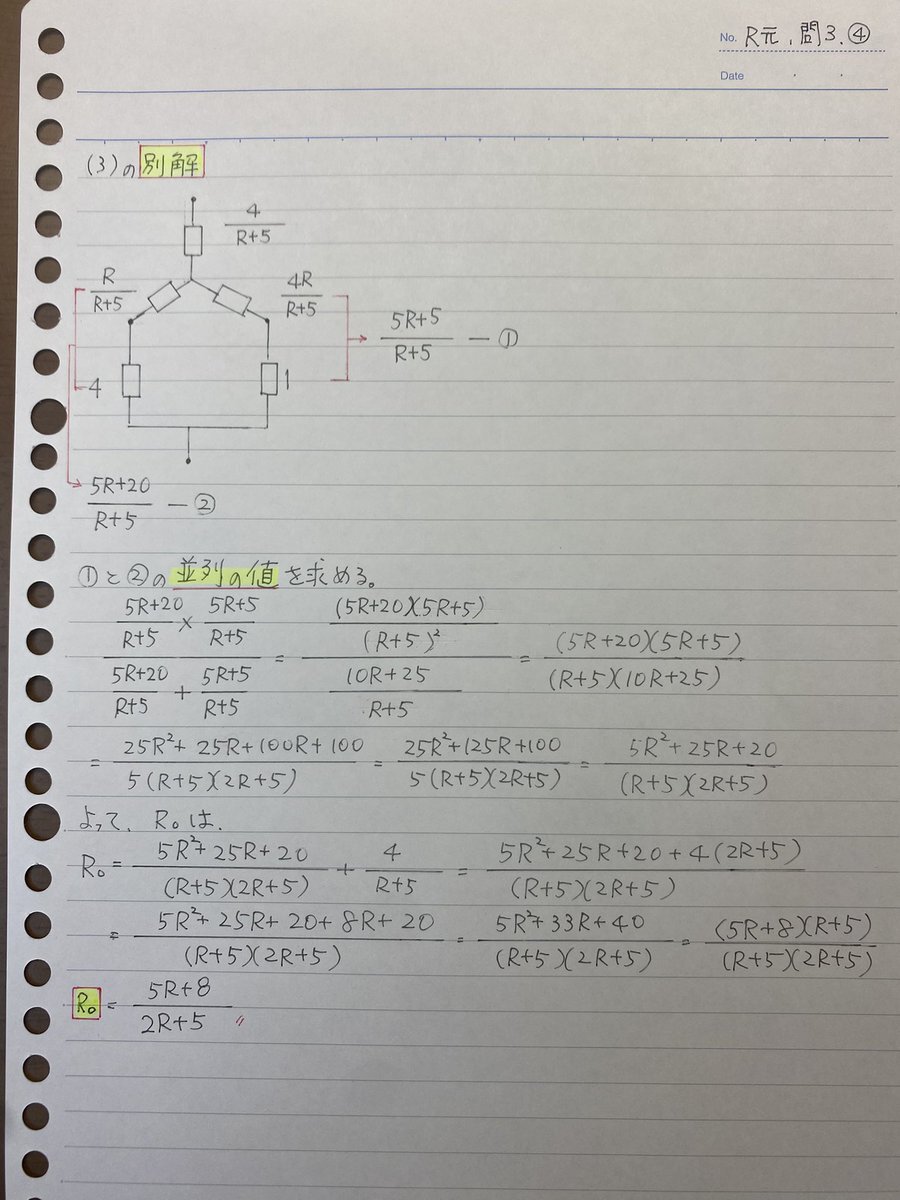 No. R元，問3.④
Date
(3)の別解
4/(R+5)
R/(R+5)
4R/(R+5)
(5R+5)/(R+5) — ①
4
1
(5R+20)/(R+5) — ②
①と②の並列の値を求める。
((5R+20)/(R+5) × (5R+5)/(R+5))/((5R+20)/(R+5) + (5R+5)/(R+5)) = ((5R+20)(5R+5)/(R+5)²)/((10R+25)/(R+5)) = (5R+20)(5R+5)/(R+5)(10R+25)
= (25R²+25R+100R+100)/5(R+5)(2R+5) = (25R²+125R+100)/5(R+5)(2R+5) = (5R²+25R+20)/(R+5)(2R+5)
よって、R₀は、
R₀ = (5R²+25R+20)/(R+5)(2R+5) + 4/(R+5) = (5R²+25R+20+4(2R+5))/(R+5)(2R+5)
= (5R²+25R+20+8R+20)/(R+5)(2R+5) = (5R²+33R+40)/(R+5)(2R+5) = (5R+8)(R+5)/(R+5)(2R+5)
R₀ = (5R+8)/(2R+5) 〃